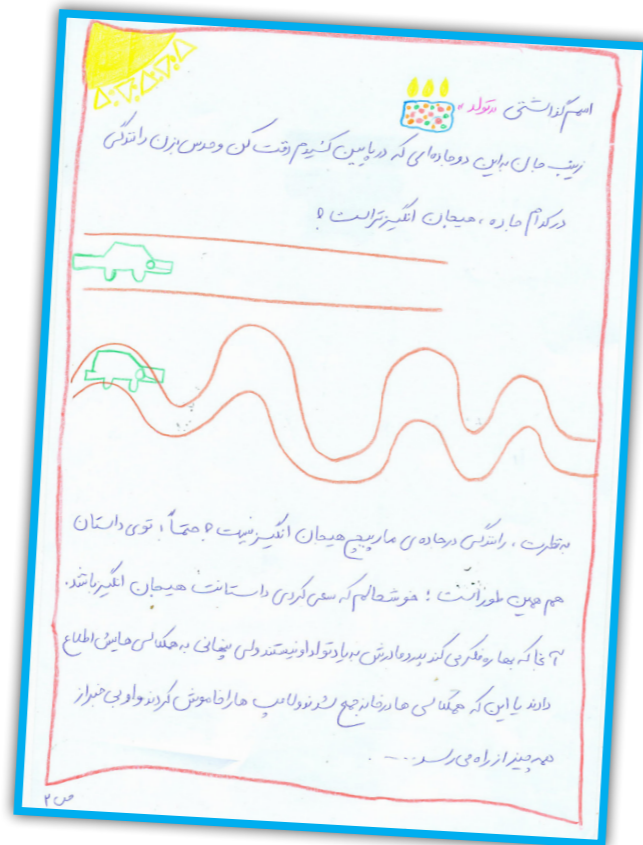 اسمم گذاشتی «تولد»
زینب جان به این دو جاده‌ای که در پایین کشیدم دقت کن و حدس بزن رانندگی
در کدام جاده، هیجان انگیزتر است؟
به نظرت، رانندگی در جاده‌ی مارپیچ هیجان انگیز نیست؟ حتماً! توی داستان
هم همین طور است؛ خوشحالم که سعی کردی داستانت هیجان انگیز باشد.
آنجا که بهاره فکر می کند پدر و مادرش به یاد تولد او نیستند ولی پنهانی به همکلاسی هایش اطلاع
دادند یا این که همکلاسی ها در خانه جمع شدند و لامپ ها را خاموش کردند و او بی خبر از
همه چیز از راه می رسد.....
ص ۲